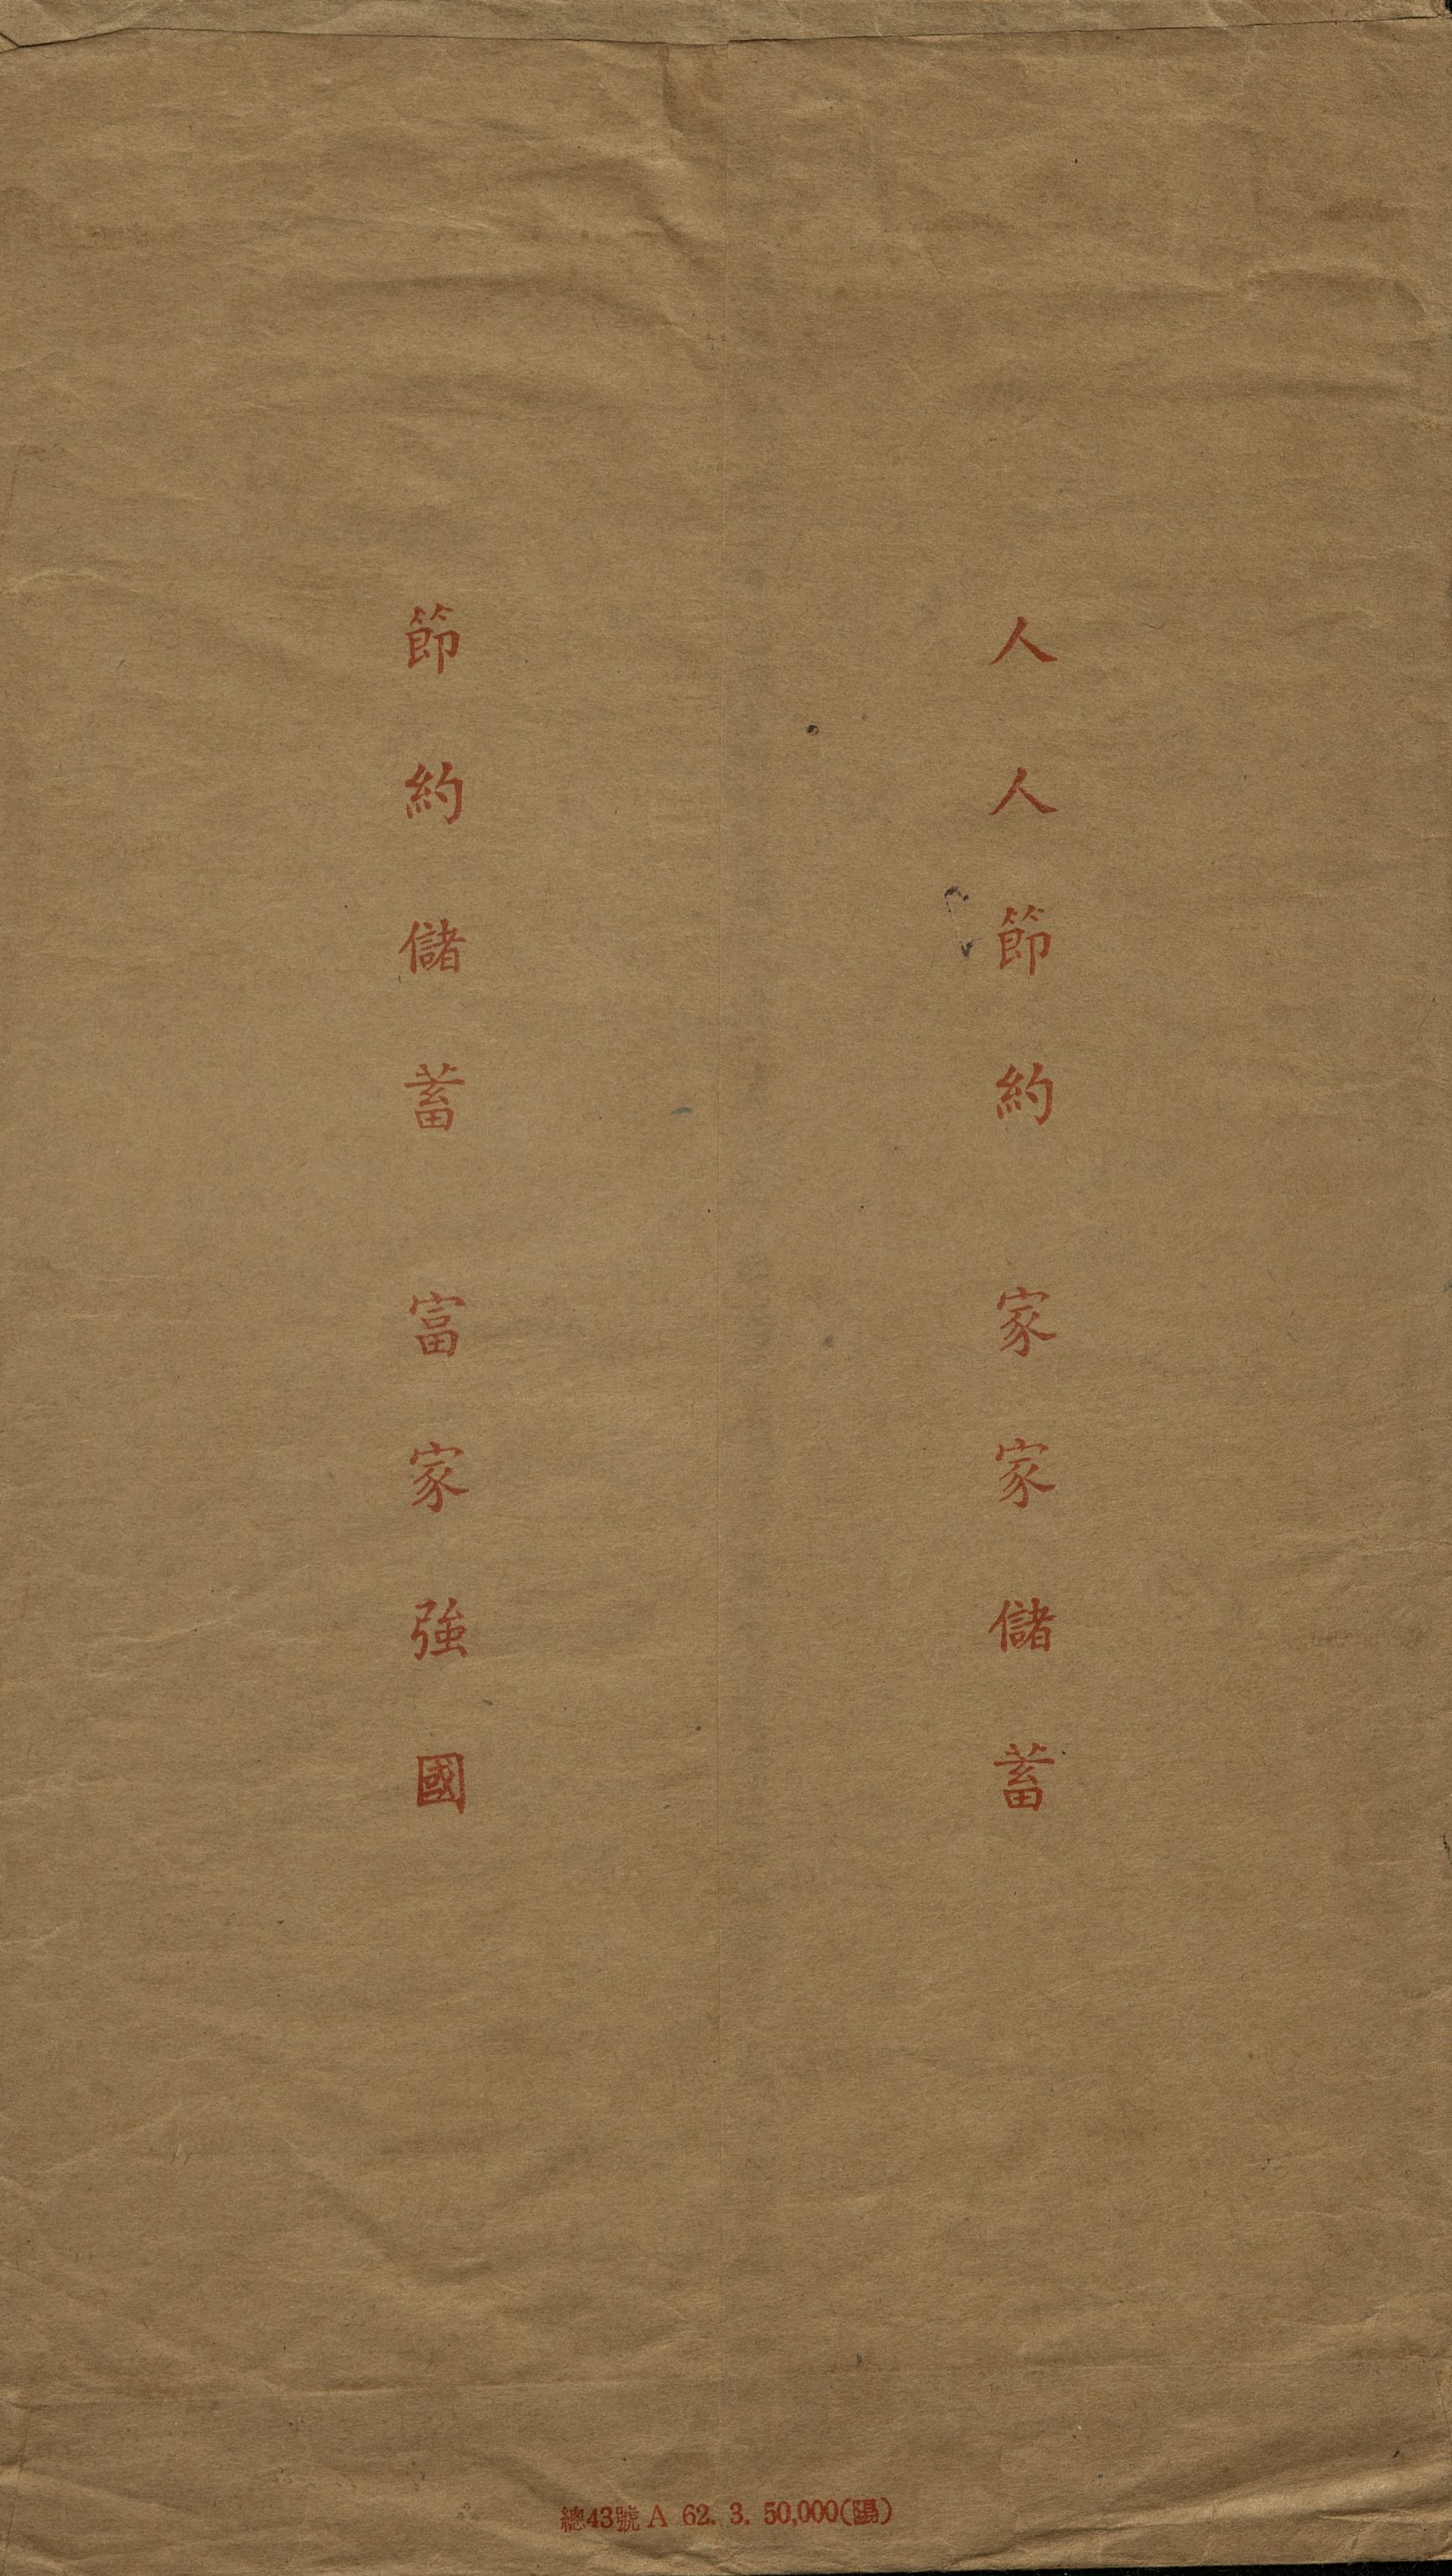 人人節約 家家儲蓄
節約儲蓄 富家強國
總43號 A 62. 3. 50,000(陽)